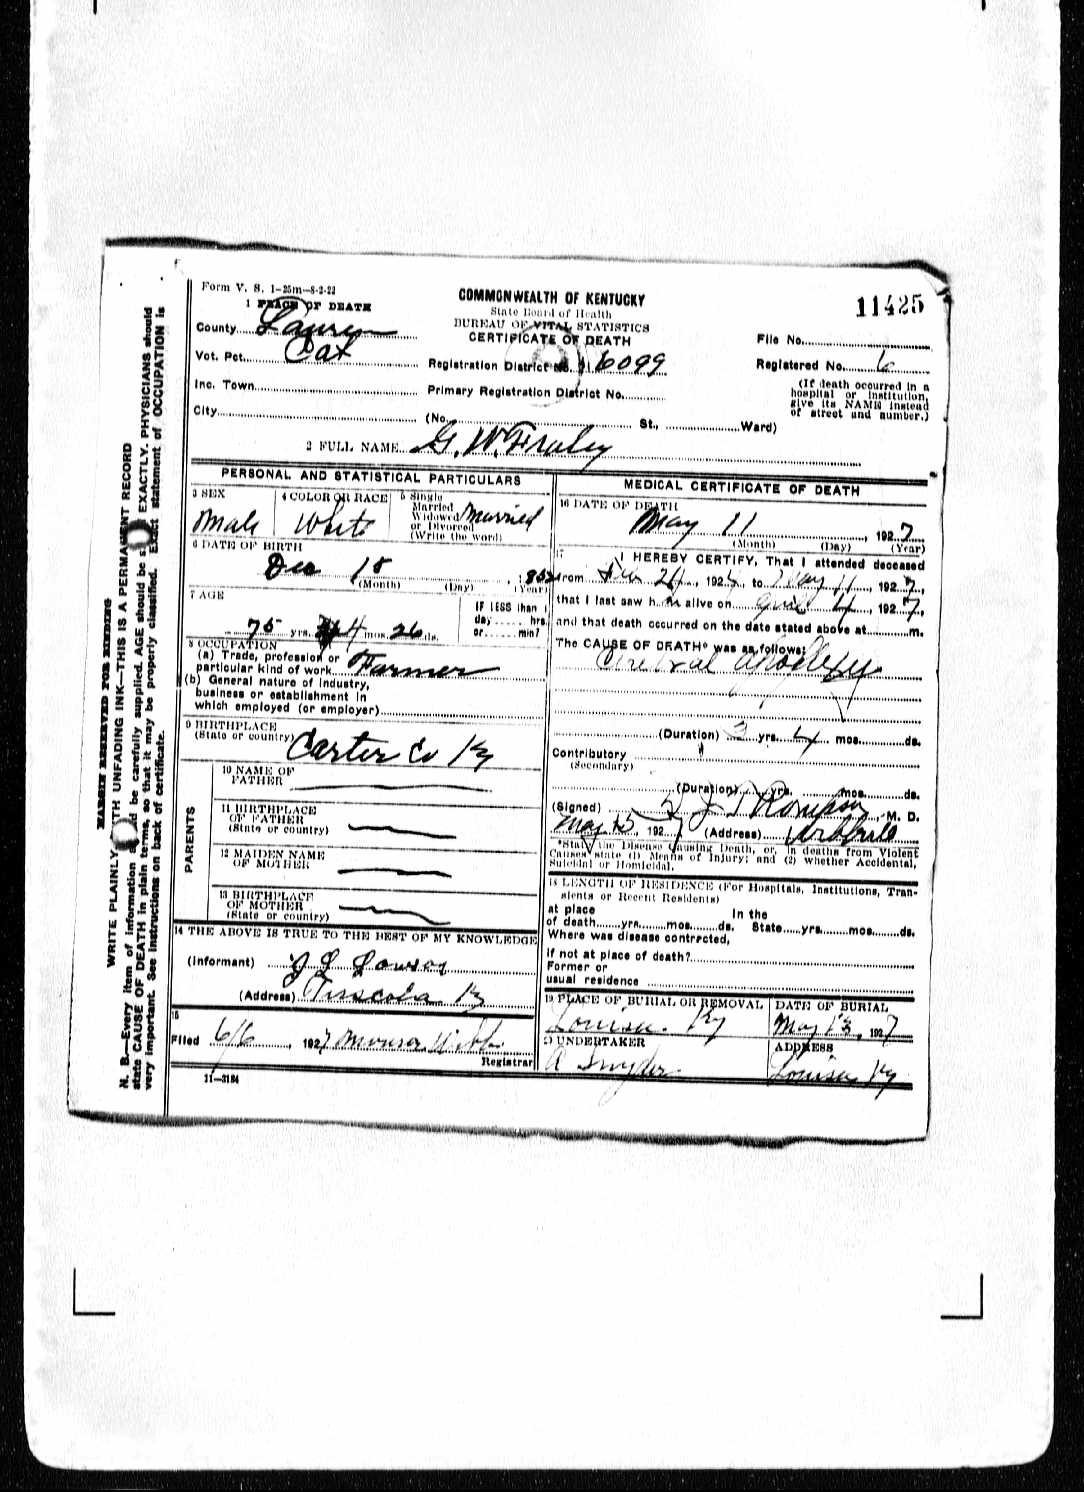 Form V. S. 1-25m-8-2-22
1 PLACE OF DEATH
COMMONWEALTH OF KENTUCKY
State Board of Health
BUREAU OF VITAL STATISTICS
CERTIFICATE OF DEATH
11425
County
Vot. Pct. Cat
Inc. Town
City
Registration District No. 6099
Primary Registration District No.
(No. St., Ward)
File No.
Registered No. 6
(If death occurred in a
hospital or institution,
give its NAME instead
of street and number.)
2 FULL NAME G. W. Fraley
PERSONAL AND STATISTICAL PARTICULARS
3 SEX
Male
4 COLOR OR RACE
White
5 Single
Married
Widowed
or Divorced
(Write the word)
Married
6 DATE OF BIRTH
Dec 18, 1852
(Month) (Day) (Year)
7 AGE
75 yrs. 4 mos. 26 ds.
IF LESS than 1
day hrs.
or min?
8 OCCUPATION
(a) Trade, profession or
particular kind of work Farmer
(b) General nature of industry,
business or establishment in
which employed (or employer)
9 BIRTHPLACE
(State or country) Carter Co Ky
PARENTS
10 NAME OF
FATHER
11 BIRTHPLACE
OF FATHER
(State or country)
12 MAIDEN NAME
OF MOTHER
13 BIRTHPLACE
OF MOTHER
(State or country)
14 THE ABOVE IS TRUE TO THE BEST OF MY KNOWLEDGE
(Informant)
(Address) Tuscola Ky
15
Filed 6/6, 1927 Webb
Registrar
11-3184
MEDICAL CERTIFICATE OF DEATH
16 DATE OF DEATH
May 11, 1927
(Month) (Day) (Year)
17
I HEREBY CERTIFY, That I attended deceased
from Feb 24, 192 , to May 11, 1927,
that I last saw h im alive on April 4, 1927,
and that death occurred on the date stated above at m.
The CAUSE OF DEATH* was as follows:
Cerebral apoplexy
(Duration) 3 yrs. 4 mos. ds.
Contributory
(Secondary)
(Duration) yrs. mos. ds.
(Signed) J Thompson, M. D.
May 15, 1927 (Address) Webbville
*State the Disease Causing Death, or, in deaths from Violent
Causes state (1) Means of Injury; and (2) whether Accidental,
Suicidal or Homicidal.
18 LENGTH OF RESIDENCE (For Hospitals, Institutions, Tran-
sients or Recent Residents)
at place In the
of death yrs. mos. ds. State yrs. mos. ds.
Where was disease contracted,
if not at place of death?
Former or
usual residence
19 PLACE OF BURIAL OR REMOVAL
Louisa. Ky
DATE OF BURIAL
May 13, 1927
20 UNDERTAKER
A Snyder
ADDRESS
Louisa Ky
MARGIN RESERVED FOR BINDING
WRITE PLAINLY WITH UNFADING INK—THIS IS A PERMANENT RECORD
N. B.—Every item of information should be carefully supplied. AGE should be stated EXACTLY. PHYSICIANS should
state CAUSE OF DEATH in plain terms, so that it may be properly classified. Exact statement of OCCUPATION is
very important. See instructions on back of certificate.